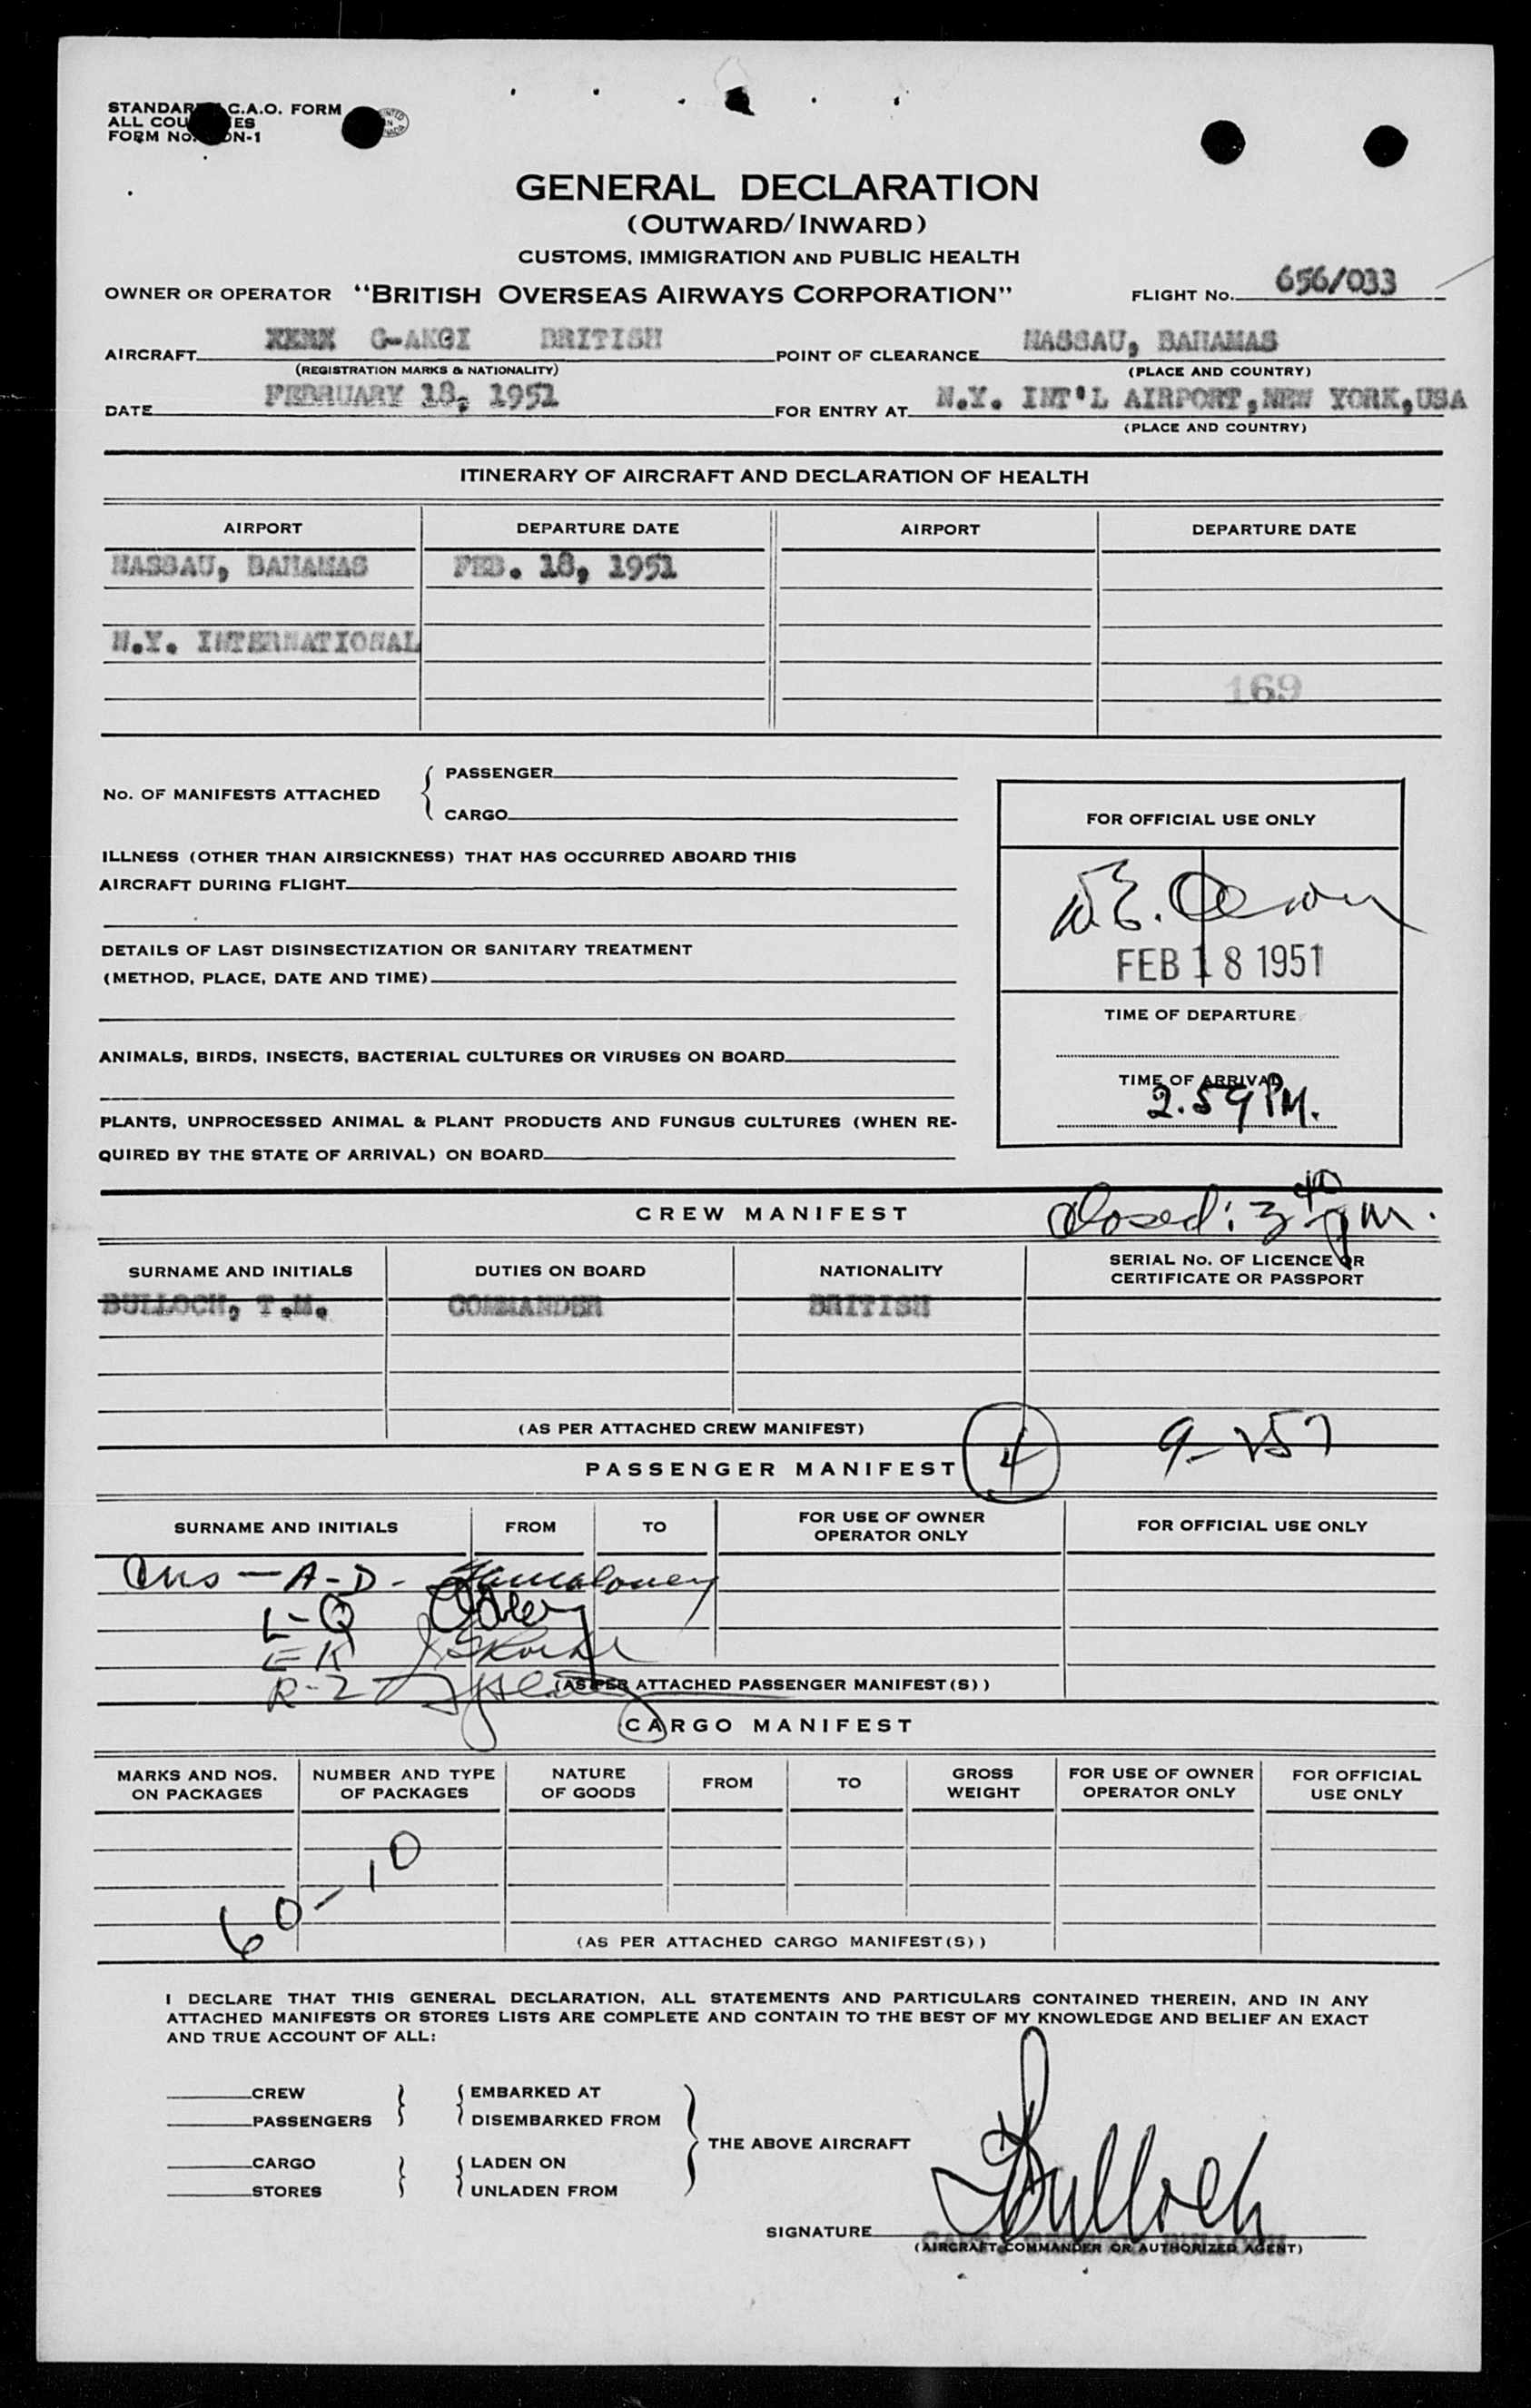 STANDARD C.A.O. FORM
ALL COUNTRIES
FORM No. CON-1
GENERAL DECLARATION
(OUTWARD/INWARD)
CUSTOMS, IMMIGRATION AND PUBLIC HEALTH
OWNER OR OPERATOR "BRITISH OVERSEAS AIRWAYS CORPORATION" FLIGHT No. 656/033
AIRCRAFT G-AKGI BRITISH POINT OF CLEARANCE NASSAU, BAHAMAS
(REGISTRATION MARKS & NATIONALITY) (PLACE AND COUNTRY)
DATE FEBRUARY 18, 1951 FOR ENTRY AT N.Y. INT'L AIRPORT, NEW YORK, USA
(PLACE AND COUNTRY)
ITINERARY OF AIRCRAFT AND DECLARATION OF HEALTH
AIRPORT DEPARTURE DATE AIRPORT DEPARTURE DATE
NASSAU, BAHAMAS FEB. 18, 1951
N.Y. INTERNATIONAL
169
No. OF MANIFESTS ATTACHED { PASSENGER
CARGO
FOR OFFICIAL USE ONLY
ILLNESS (OTHER THAN AIRSICKNESS) THAT HAS OCCURRED ABOARD THIS
AIRCRAFT DURING FLIGHT
DETAILS OF LAST DISINSECTIZATION OR SANITARY TREATMENT
(METHOD, PLACE, DATE AND TIME)
FEB 18 1951
TIME OF DEPARTURE
ANIMALS, BIRDS, INSECTS, BACTERIAL CULTURES OR VIRUSES ON BOARD
TIME OF ARRIVAL
2.59 PM.
PLANTS, UNPROCESSED ANIMAL & PLANT PRODUCTS AND FUNGUS CULTURES (WHEN RE-
QUIRED BY THE STATE OF ARRIVAL) ON BOARD
CREW MANIFEST closed: 3 40 pm.
SURNAME AND INITIALS DUTIES ON BOARD NATIONALITY SERIAL No. OF LICENCE OR
CERTIFICATE OR PASSPORT
BULLOCH, T.M. COMMANDER BRITISH
(AS PER ATTACHED CREW MANIFEST)
PASSENGER MANIFEST 4
SURNAME AND INITIALS FROM TO FOR USE OF OWNER
OPERATOR ONLY FOR OFFICIAL USE ONLY
A-D-
L-Q
E K
R-Z
(AS PER ATTACHED PASSENGER MANIFEST(S))
CARGO MANIFEST
MARKS AND NOS.
ON PACKAGES NUMBER AND TYPE
OF PACKAGES NATURE
OF GOODS FROM TO GROSS
WEIGHT FOR USE OF OWNER
OPERATOR ONLY FOR OFFICIAL
USE ONLY
60-10
(AS PER ATTACHED CARGO MANIFEST(S))
I DECLARE THAT THIS GENERAL DECLARATION, ALL STATEMENTS AND PARTICULARS CONTAINED THEREIN, AND IN ANY
ATTACHED MANIFESTS OR STORES LISTS ARE COMPLETE AND CONTAIN TO THE BEST OF MY KNOWLEDGE AND BELIEF AN EXACT
AND TRUE ACCOUNT OF ALL:
CREW EMBARKED AT
PASSENGERS DISEMBARKED FROM
THE ABOVE AIRCRAFT
CARGO LADEN ON
STORES UNLADEN FROM
SIGNATURE Bulloch
(AIRCRAFT COMMANDER OR AUTHORIZED AGENT)